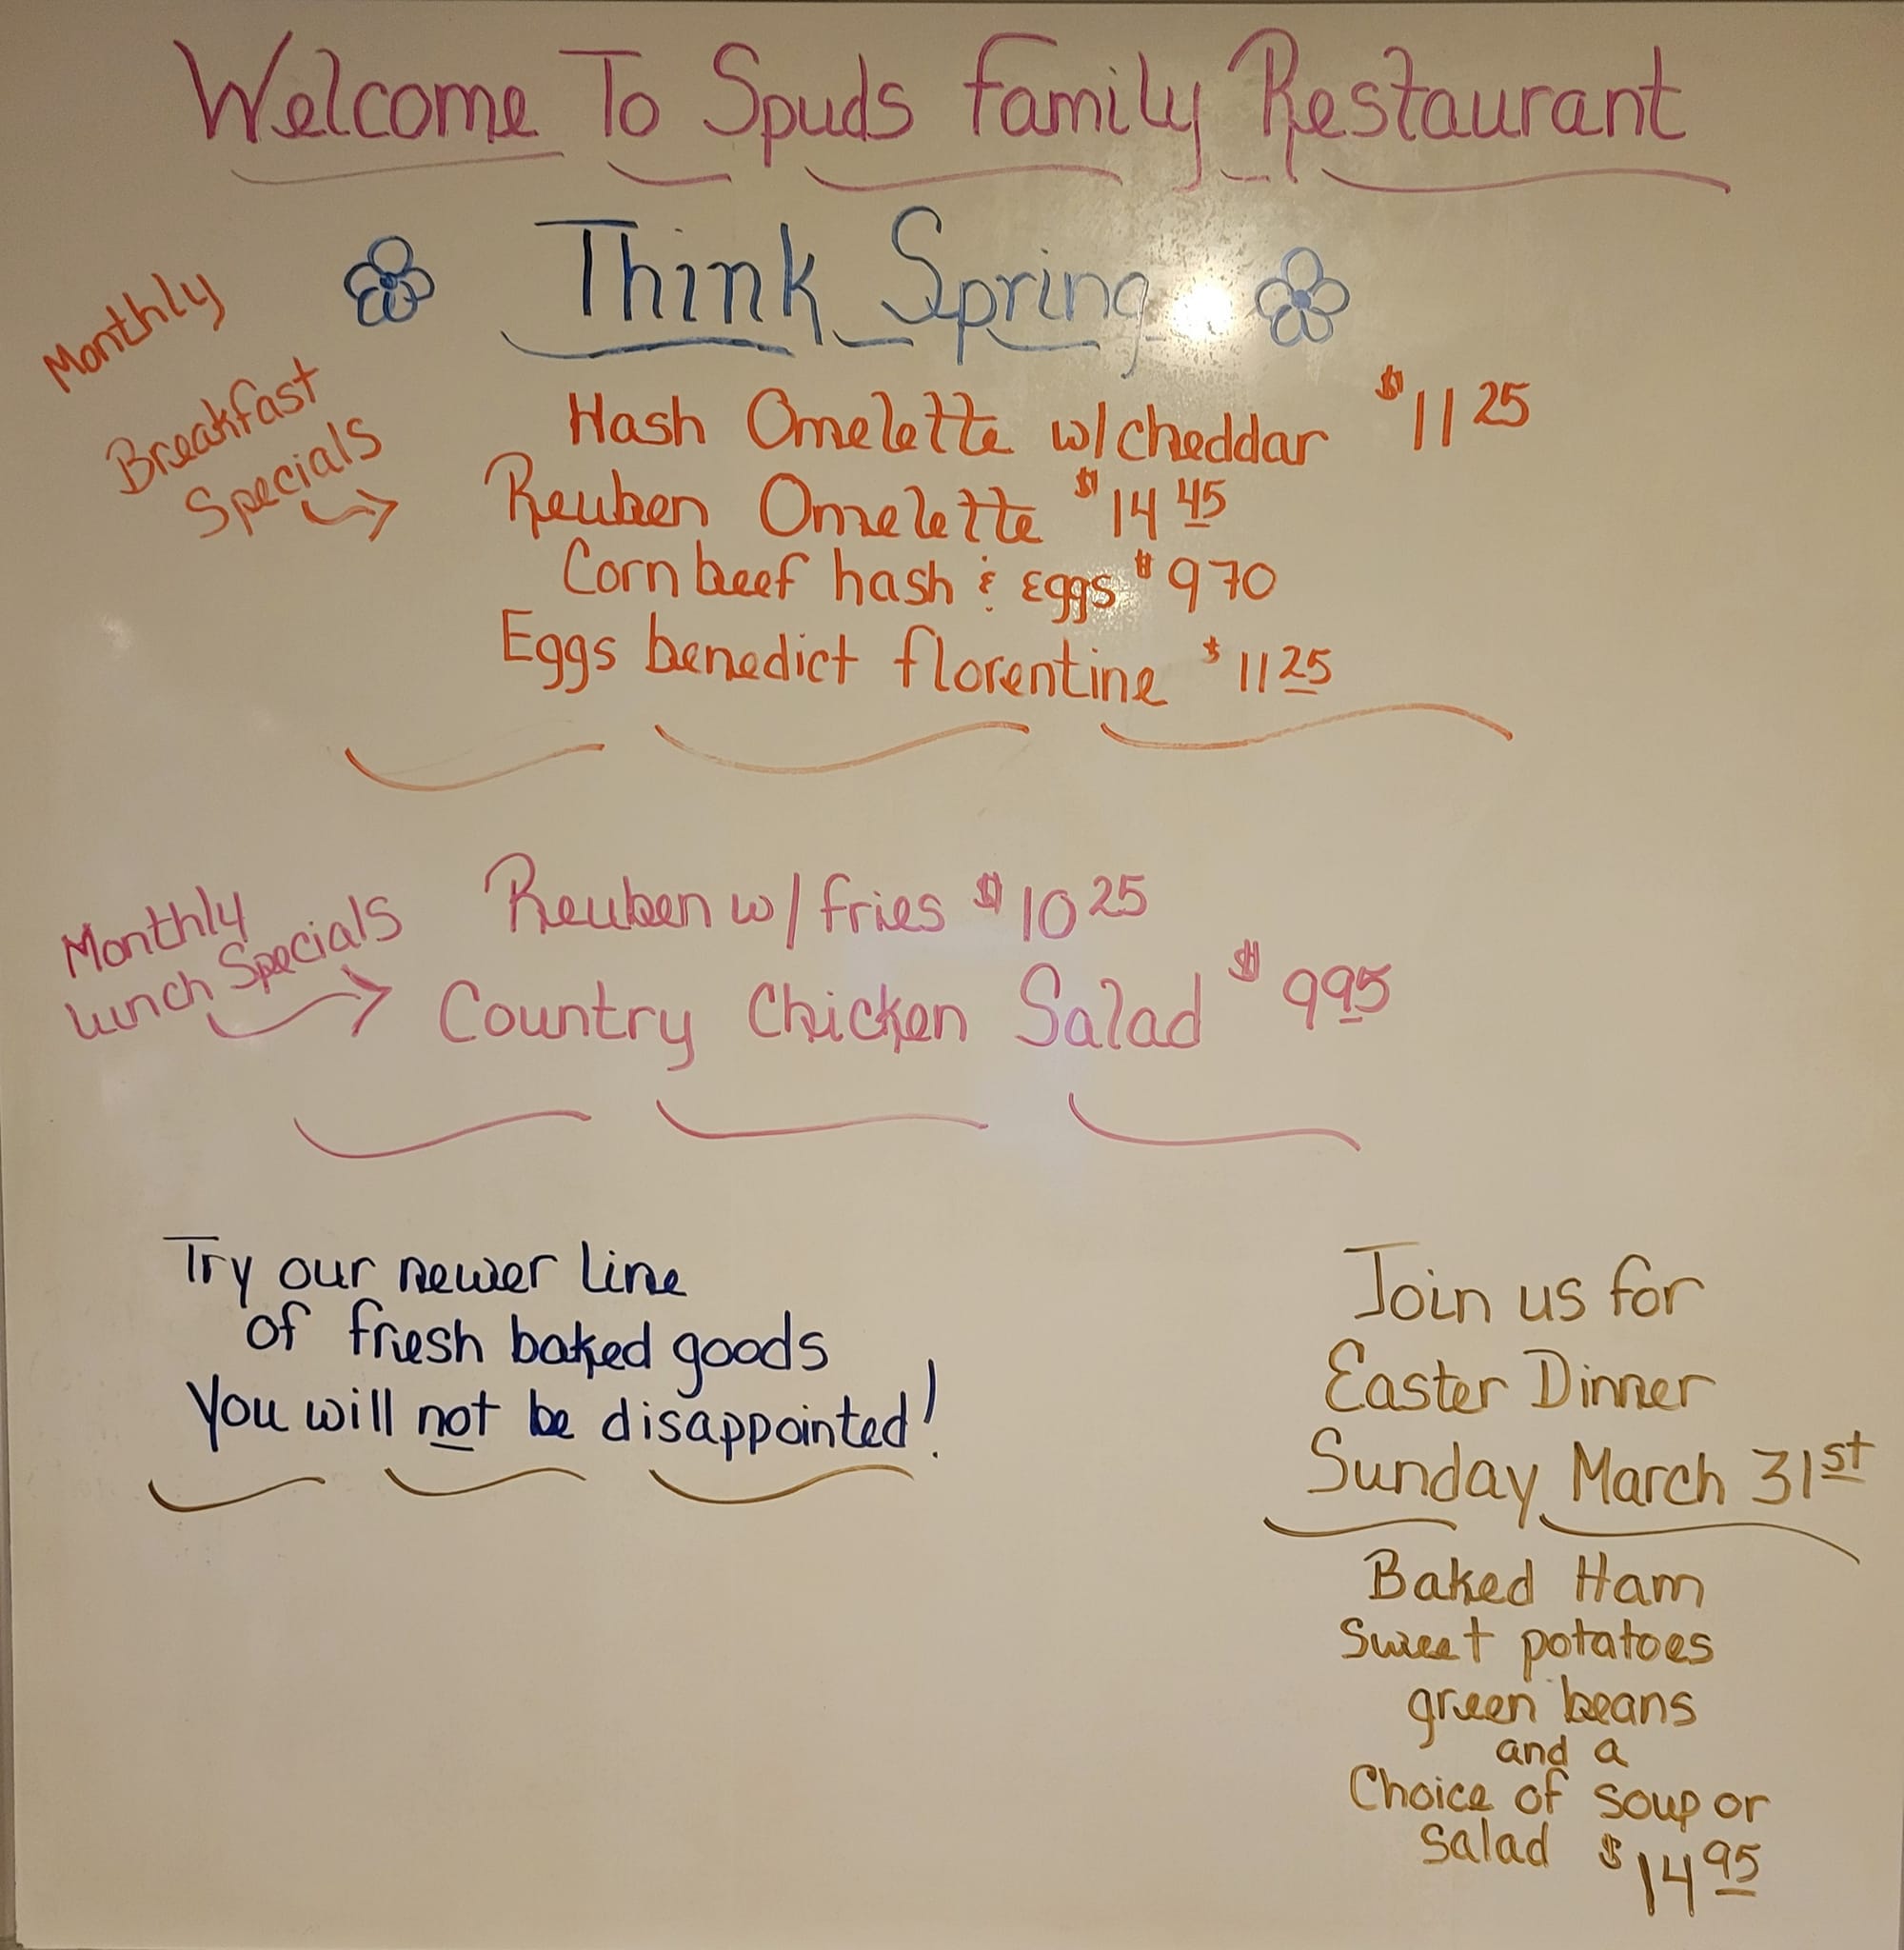 Welcome To Spuds Family Restaurant
Think Spring
Monthly
Breakfast
Specials
Hash Omelette w/cheddar $11 25
Reuben Omelette $14 45
Corn beef hash & Eggs $9 70
Eggs benedict florentine $11 25
Monthly
Lunch Specials
Reuben w/ fries $10 25
Country Chicken Salad $9 95
Try our newer line
of fresh baked goods
You will not be disappointed!
Join us for
Easter Dinner
Sunday March 31st
Baked Ham
Sweet potatoes
green beans
and a
Choice of soup or
salad $14 95